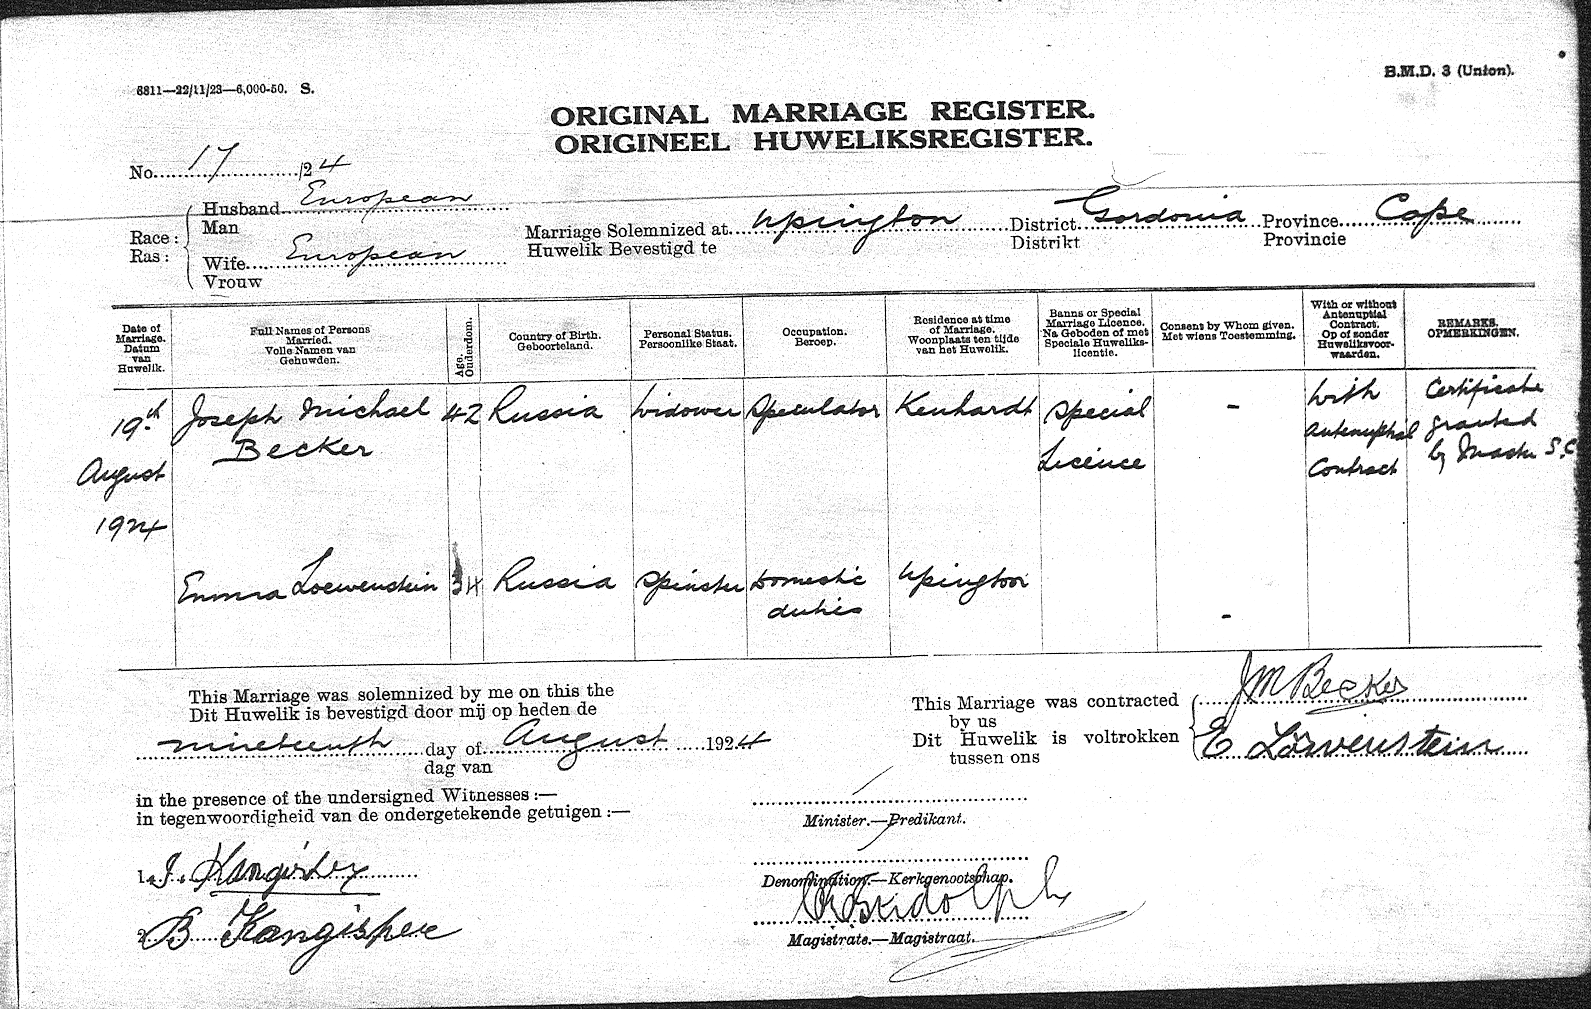 6811—22/11/23—6,000-50. S.
B.M.D. 3 (Union).
ORIGINAL MARRIAGE REGISTER.
ORIGINEEL HUWELIKSREGISTER.
No. 17 /24
Race: Husband European
Ras: Man
Wife European
Vrouw
Marriage Solemnized at Upington District Gordonia Province Cape
Huwelik Bevestigd te Distrikt Provincie
Date of Marriage. Datum van Huwelik.
Full Names of Persons Married. Volle Namen van Gehuwden.
Age. Ouderdom.
Country of Birth. Geboorteland.
Personal Status. Persoonlike Staat.
Occupation. Beroep.
Residence at time of Marriage. Woonplaats ten tijde van het Huwelik.
Banns or Special Marriage Licence. Na Geboden of met Speciale Huweliks-licentie.
Consent by Whom given. Met wiens Toestemming.
With or without Antenuptial Contract. Op of sonder Huweliksvoor-waarden.
REMARKS. OPMERKINGEN.
19th August 1924
Joseph Michael Becker
42
Russia
Widower
Speculator
Kenhardt
Special Licence
-
With antenuptial Contract
Certificate granted by Master S.C
Emma Loewenstein
34
Russia
Spinster
Domestic duties
Upington
-
This Marriage was solemnized by me on this the
Dit Huwelik is bevestigd door mij op heden de
nineteenth day of August 1924
dag van
in the presence of the undersigned Witnesses :—
in tegenwoordigheid van de ondergetekende getuigen :—
1.
2. B
This Marriage was contracted by us
Dit Huwelik is voltrokken tussen ons
JM Becker
E Löwenstein
Minister.—Predikant.
Denomination.—Kerkgenootschap.
Magistrate.—Magistraat.